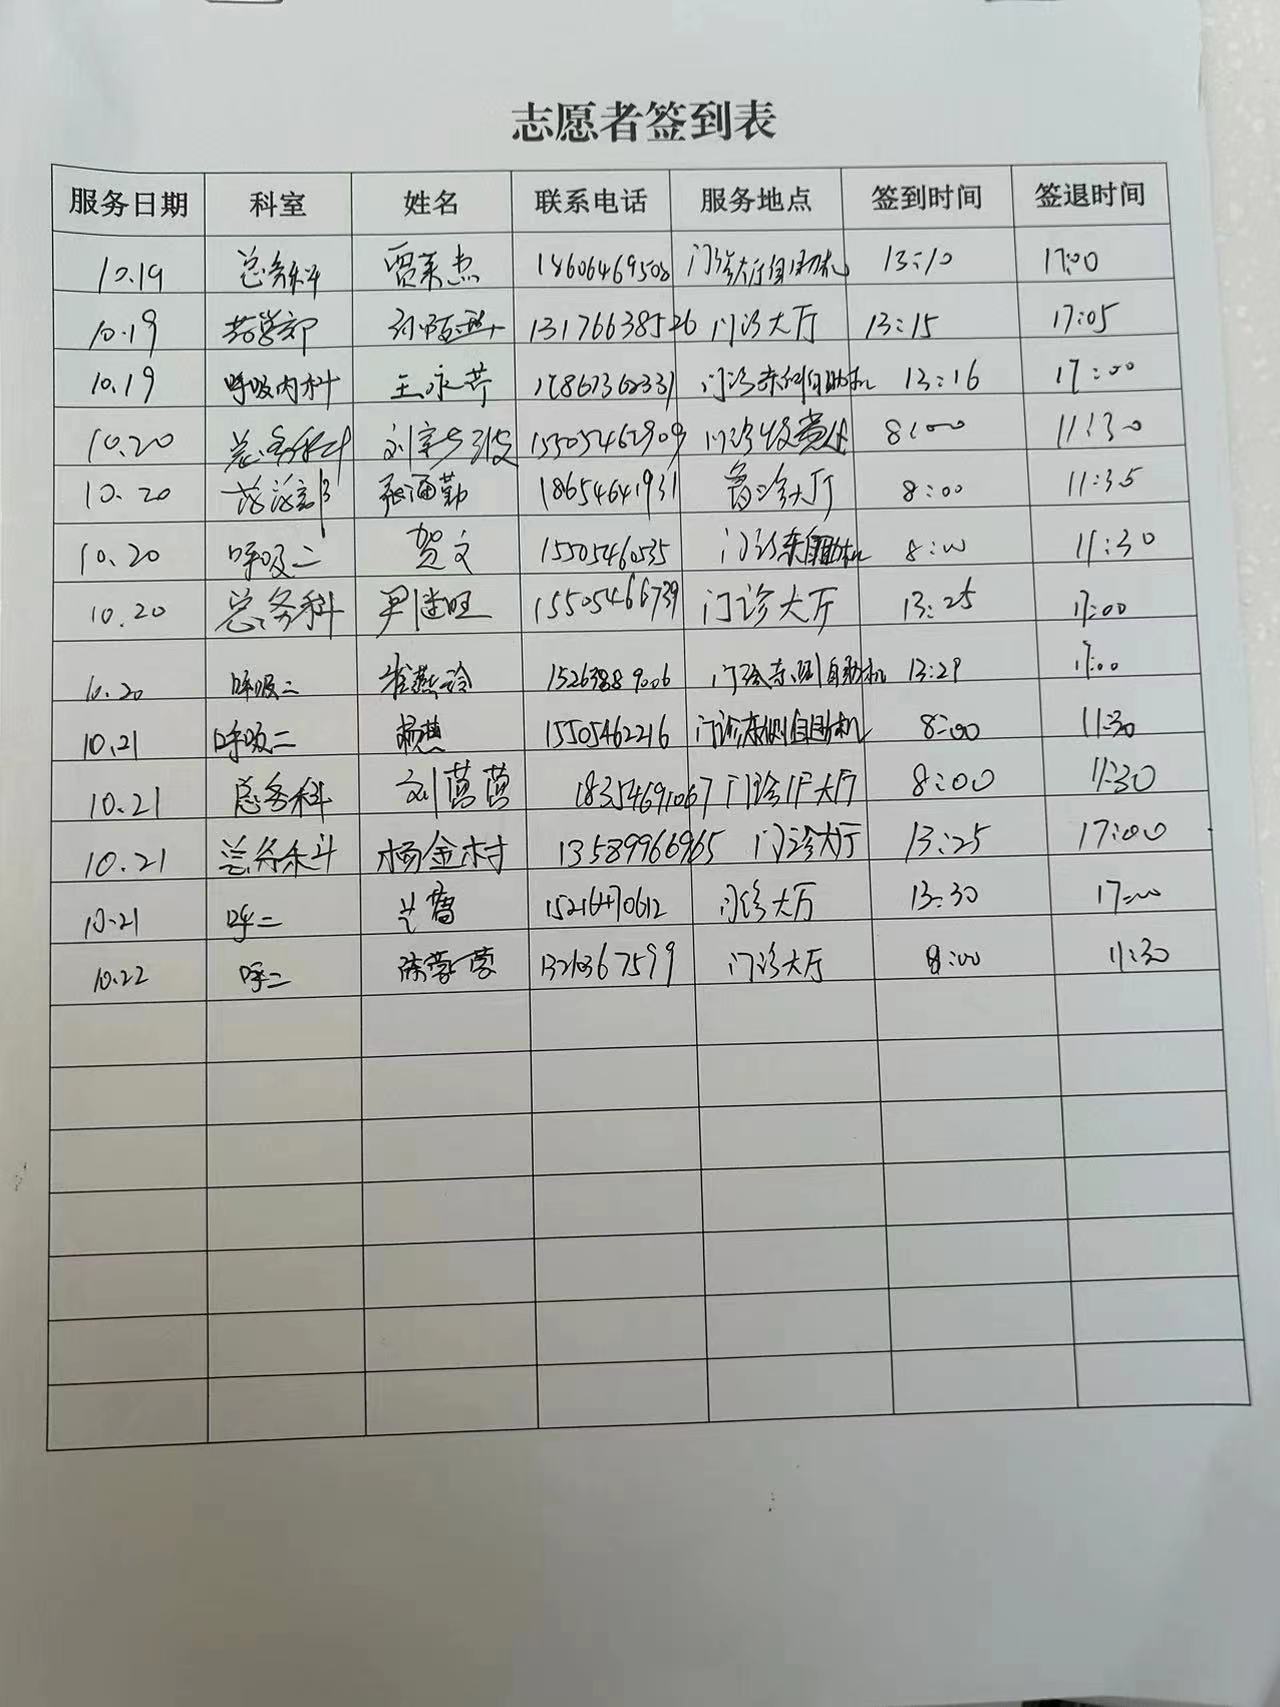 志愿者签到表
服务日期 科室 姓名 联系电话 服务地点 签到时间 签退时间
10.19 总务科 18606469508 门诊大厅自助机 13:10 17:00
10.19 药学部 13176638526 门诊大厅 13:15 17:05
10.19 呼吸内科 王永芹 17861362331 门诊东侧自助机 13:16 17:00
10.20 总务科 15505462909 门诊收费处 8:00 11:30
10.20 张海勤 18654641931 大厅 8:00 11:35
10.20 呼吸二 贺文 15505460535 门诊东自助机 8:00 11:30
10.20 总务科 15505466739 门诊大厅 13:25 17:00
10.20 呼吸二 崔燕玲 15263889006 门诊东侧自助机 13:29 17:00
10.21 呼吸二 杨燕 15505462216 门诊东侧自助机 8:00 11:30
10.21 总务科 刘莒莒 18354691067 门诊1F大厅 8:00 11:30
10.21 总务科 杨金村 13589966965 门诊大厅 13:25 17:00
10.21 呼二 门诊大厅 13:30 17:00
10.22 呼二 13210367599 门诊大厅 8:00 11:30